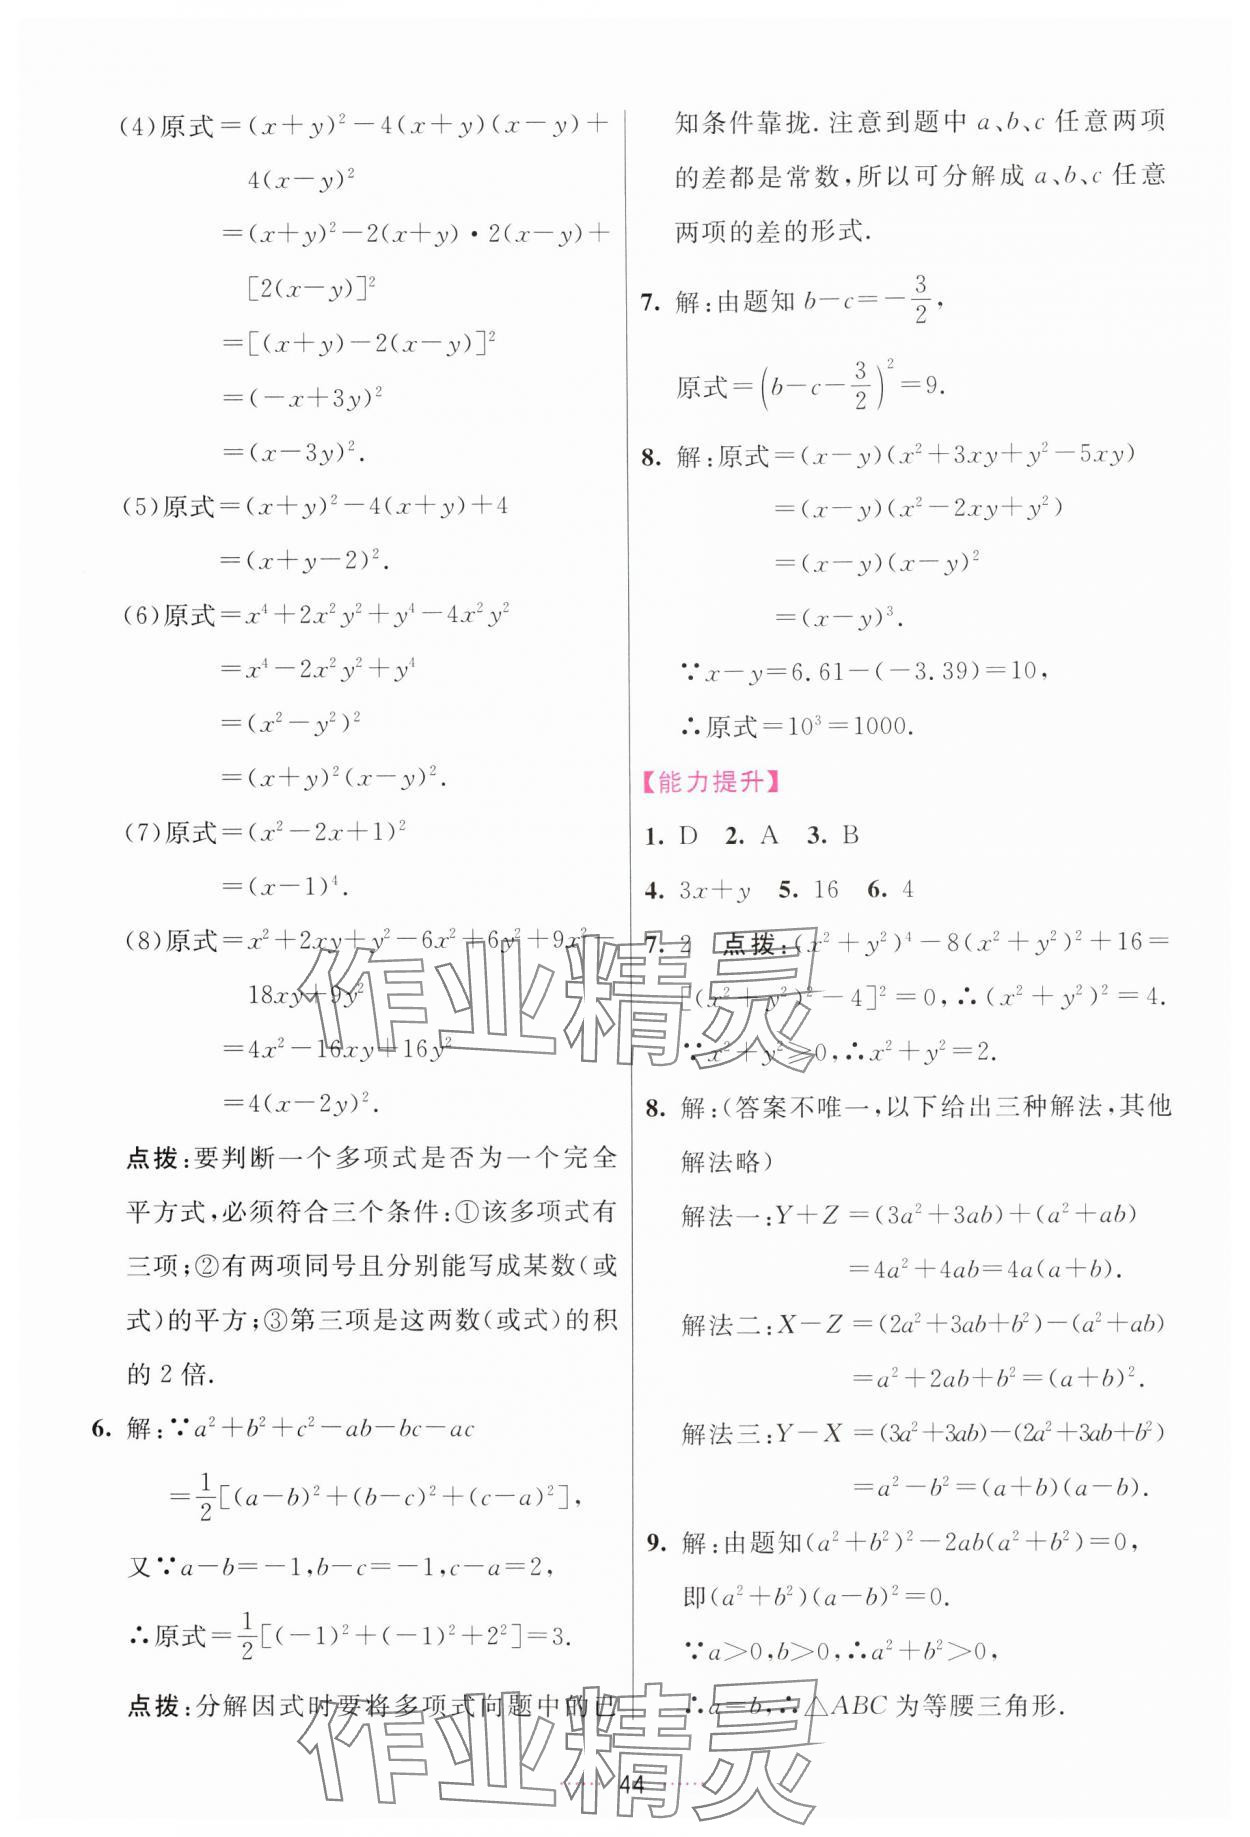 (4)原式＝(x＋y)²－4(x＋y)(x－y)＋
4(x－y)²
＝(x＋y)²－2(x＋y)·2(x－y)＋
[2(x－y)]²
＝[(x＋y)－2(x－y)]²
＝(－x＋3y)²
＝(x－3y)².
(5)原式＝(x＋y)²－4(x＋y)＋4
＝(x＋y－2)².
(6)原式＝x⁴＋2x²y²＋y⁴－4x²y²
＝x⁴－2x²y²＋y⁴
＝(x²－y²)²
＝(x＋y)²(x－y)².
(7)原式＝(x²－2x＋1)²
＝(x－1)⁴.
(8)原式＝x²＋2xy＋y²－6x²＋6y²＋9x²－
18xy＋9y²
＝4x²－16xy＋16y²
＝4(x－2y)².
点拨:要判断一个多项式是否为一个完全
平方式,必须符合三个条件:①该多项式有
三项;②有两项同号且分别能写成某数(或
式)的平方;③第三项是这两数(或式)的积
的 2 倍.
6. 解:∵a²＋b²＋c²－ab－bc－ac
＝1/2[(a－b)²＋(b－c)²＋(c－a)²],
又∵a－b＝－1,b－c＝－1,c－a＝2,
∴原式＝1/2[(－1)²＋(－1)²＋2²]＝3.
点拨:分解因式时要将多项式向题中的已
知条件靠拢. 注意到题中 a、b、c 任意两项
的差都是常数,所以可分解成 a、b、c 任意
两项的差的形式.
7. 解:由题知 b－c＝－3/2,
原式＝(b－c－3/2)²＝9.
8. 解:原式＝(x－y)(x²＋3xy＋y²－5xy)
＝(x－y)(x²－2xy＋y²)
＝(x－y)(x－y)²
＝(x－y)³.
∵x－y＝6.61－(－3.39)＝10,
∴原式＝10³＝1000.
【能力提升】
1. D 2. A 3. B
4. 3x＋y 5. 16 6. 4
7. 2 点拨:(x²＋y²)⁴－8(x²＋y²)²＋16＝
[(x²＋y²)²－4]²＝0,∴(x²＋y²)²＝4.
∵x²＋y²≥0,∴x²＋y²＝2.
8. 解:(答案不唯一,以下给出三种解法,其他
解法略)
解法一:Y＋Z＝(3a²＋3ab)＋(a²＋ab)
＝4a²＋4ab＝4a(a＋b).
解法二:X－Z＝(2a²＋3ab＋b²)－(a²＋ab)
＝a²＋2ab＋b²＝(a＋b)².
解法三:Y－X＝(3a²＋3ab)－(2a²＋3ab＋b²)
＝a²－b²＝(a＋b)(a－b).
9. 解:由题知(a²＋b²)²－2ab(a²＋b²)＝0,
即(a²＋b²)(a－b)²＝0.
∵a＞0,b＞0,∴a²＋b²＞0,
∴a＝b,∴△ABC 为等腰三角形.
44
作业精灵
作业精灵